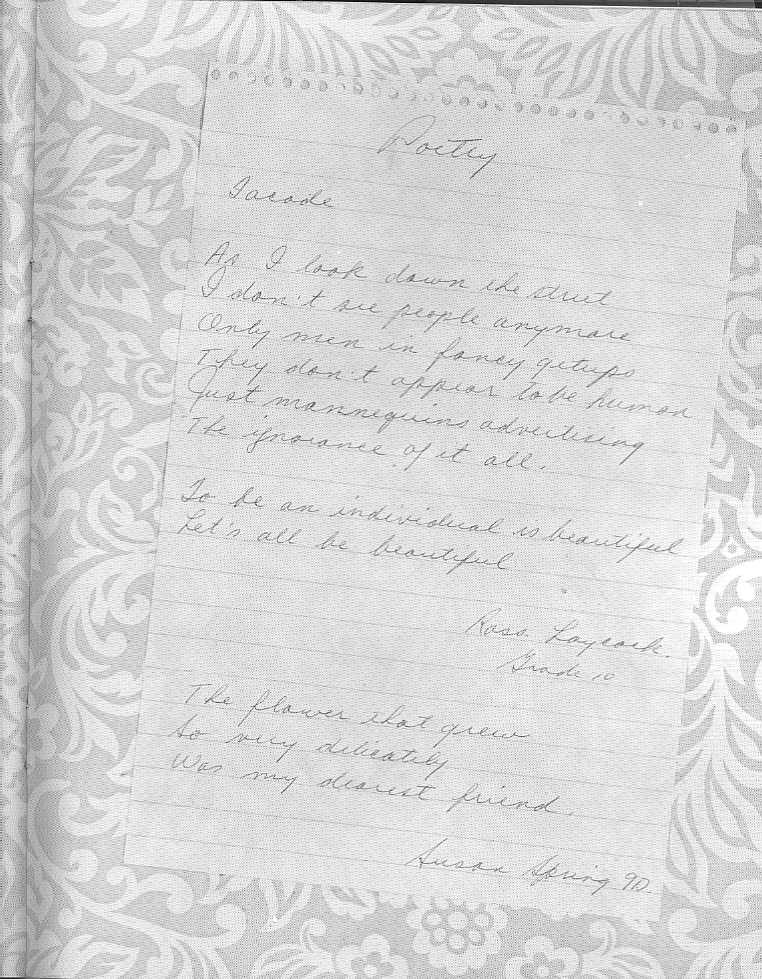 Poetry
Facade
As I look down the street
I don't see people anymore
Only men in fancy getups
They don't appear to be human
Just mannequins advertising
The ignorance of it all.
To be an individual is beautiful
Let's all be beautiful
Ross Laycock.
Grade 10
The flower that grew
So very delicately
Was my dearest friend.
Susan Spring 9D.